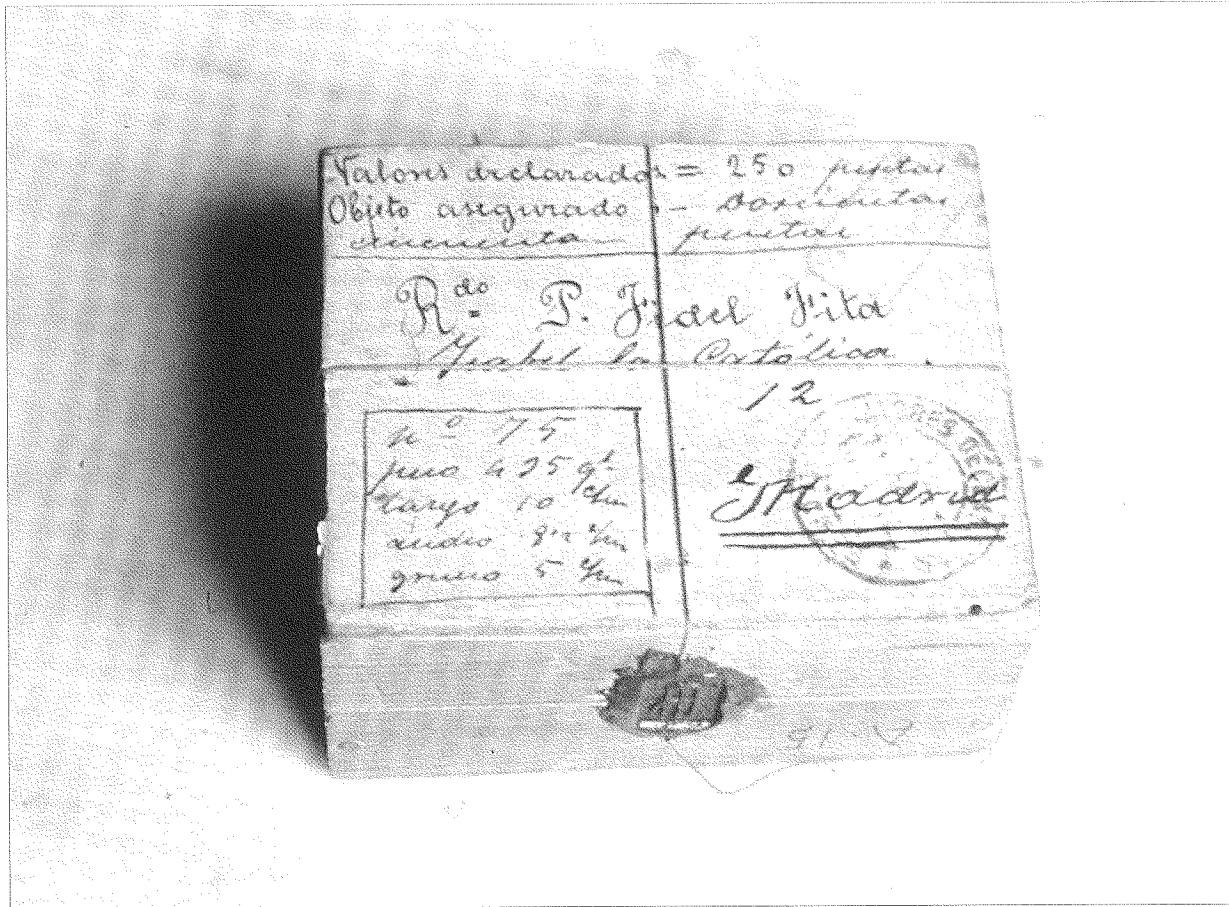 Valores declarados = 250 pesetas
Objeto asegurado - Doscientas
cincuenta pesetas
Rdo. P. Fidel Fita
Isabel la Católica.
12
Madrid
nº 75
peso 425 gs
largo 10 c/m
ancho 8½ c/m
grueso 5 c/m